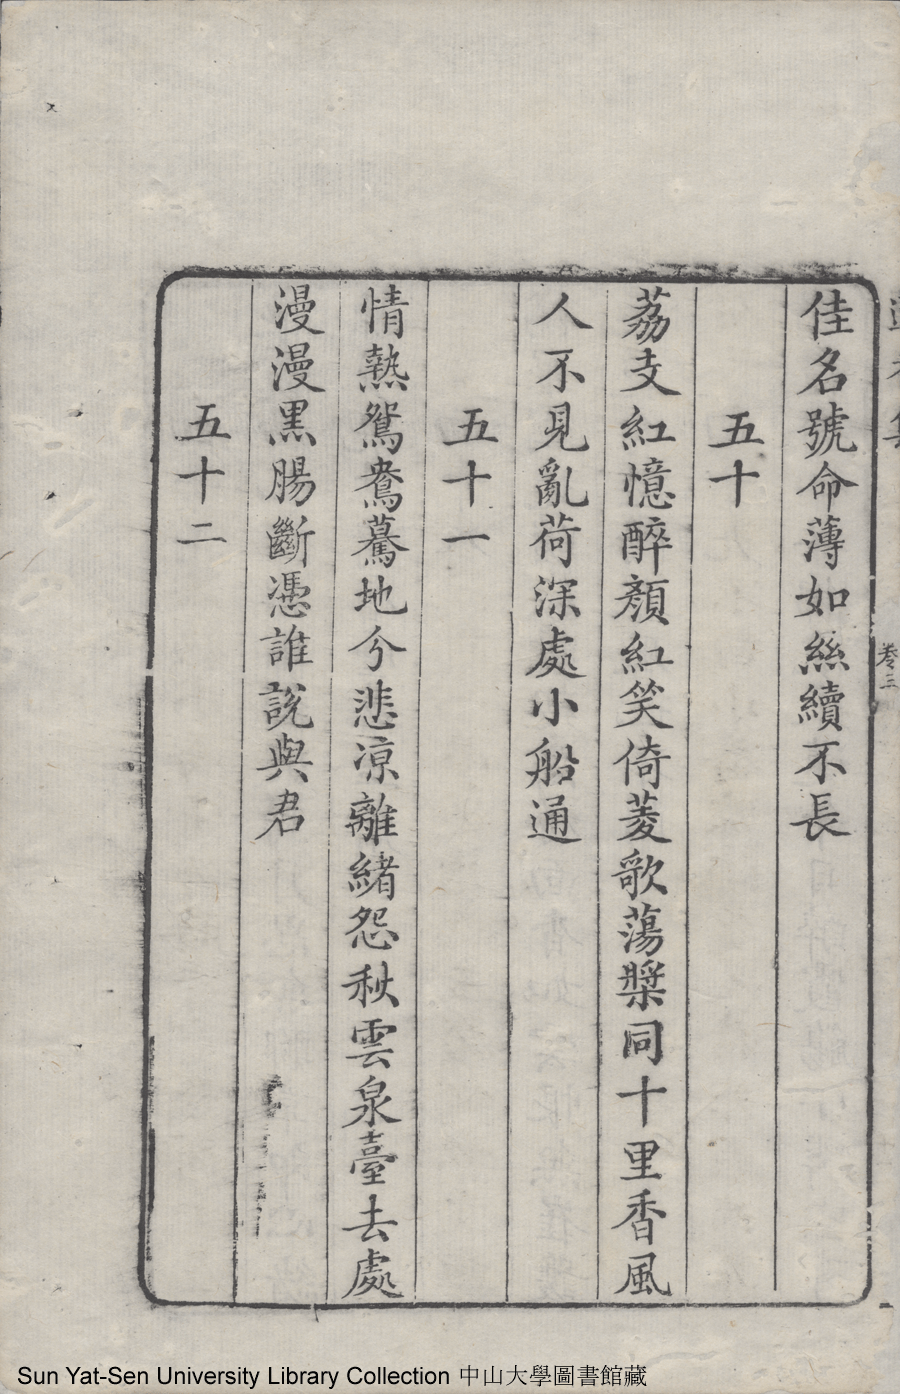 佳名號命薄如絲續不長
五十
荔支紅憶醉顏紅笑倚菱歌蕩槳同十里香風
人不見亂荷深處小船通
五十一
情熱鴛鴦驀地分悲凉離緒怨秋雲泉臺去處
漫漫黑腸斷憑誰說與君
五十二
卷三
Sun Yat-Sen University Library Collection 中山大學圖書館藏